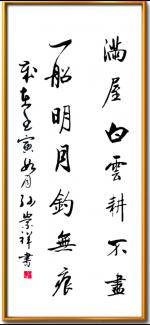 滿屋白雲耕不盡
一船明月釣無痕
歲在壬寅如月孙崇祥書